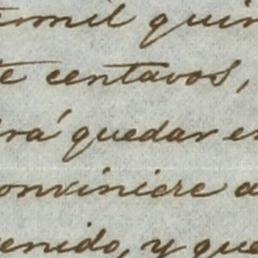 mil quin
te centavos,
rá quedar es
conviniere a
enido, y que